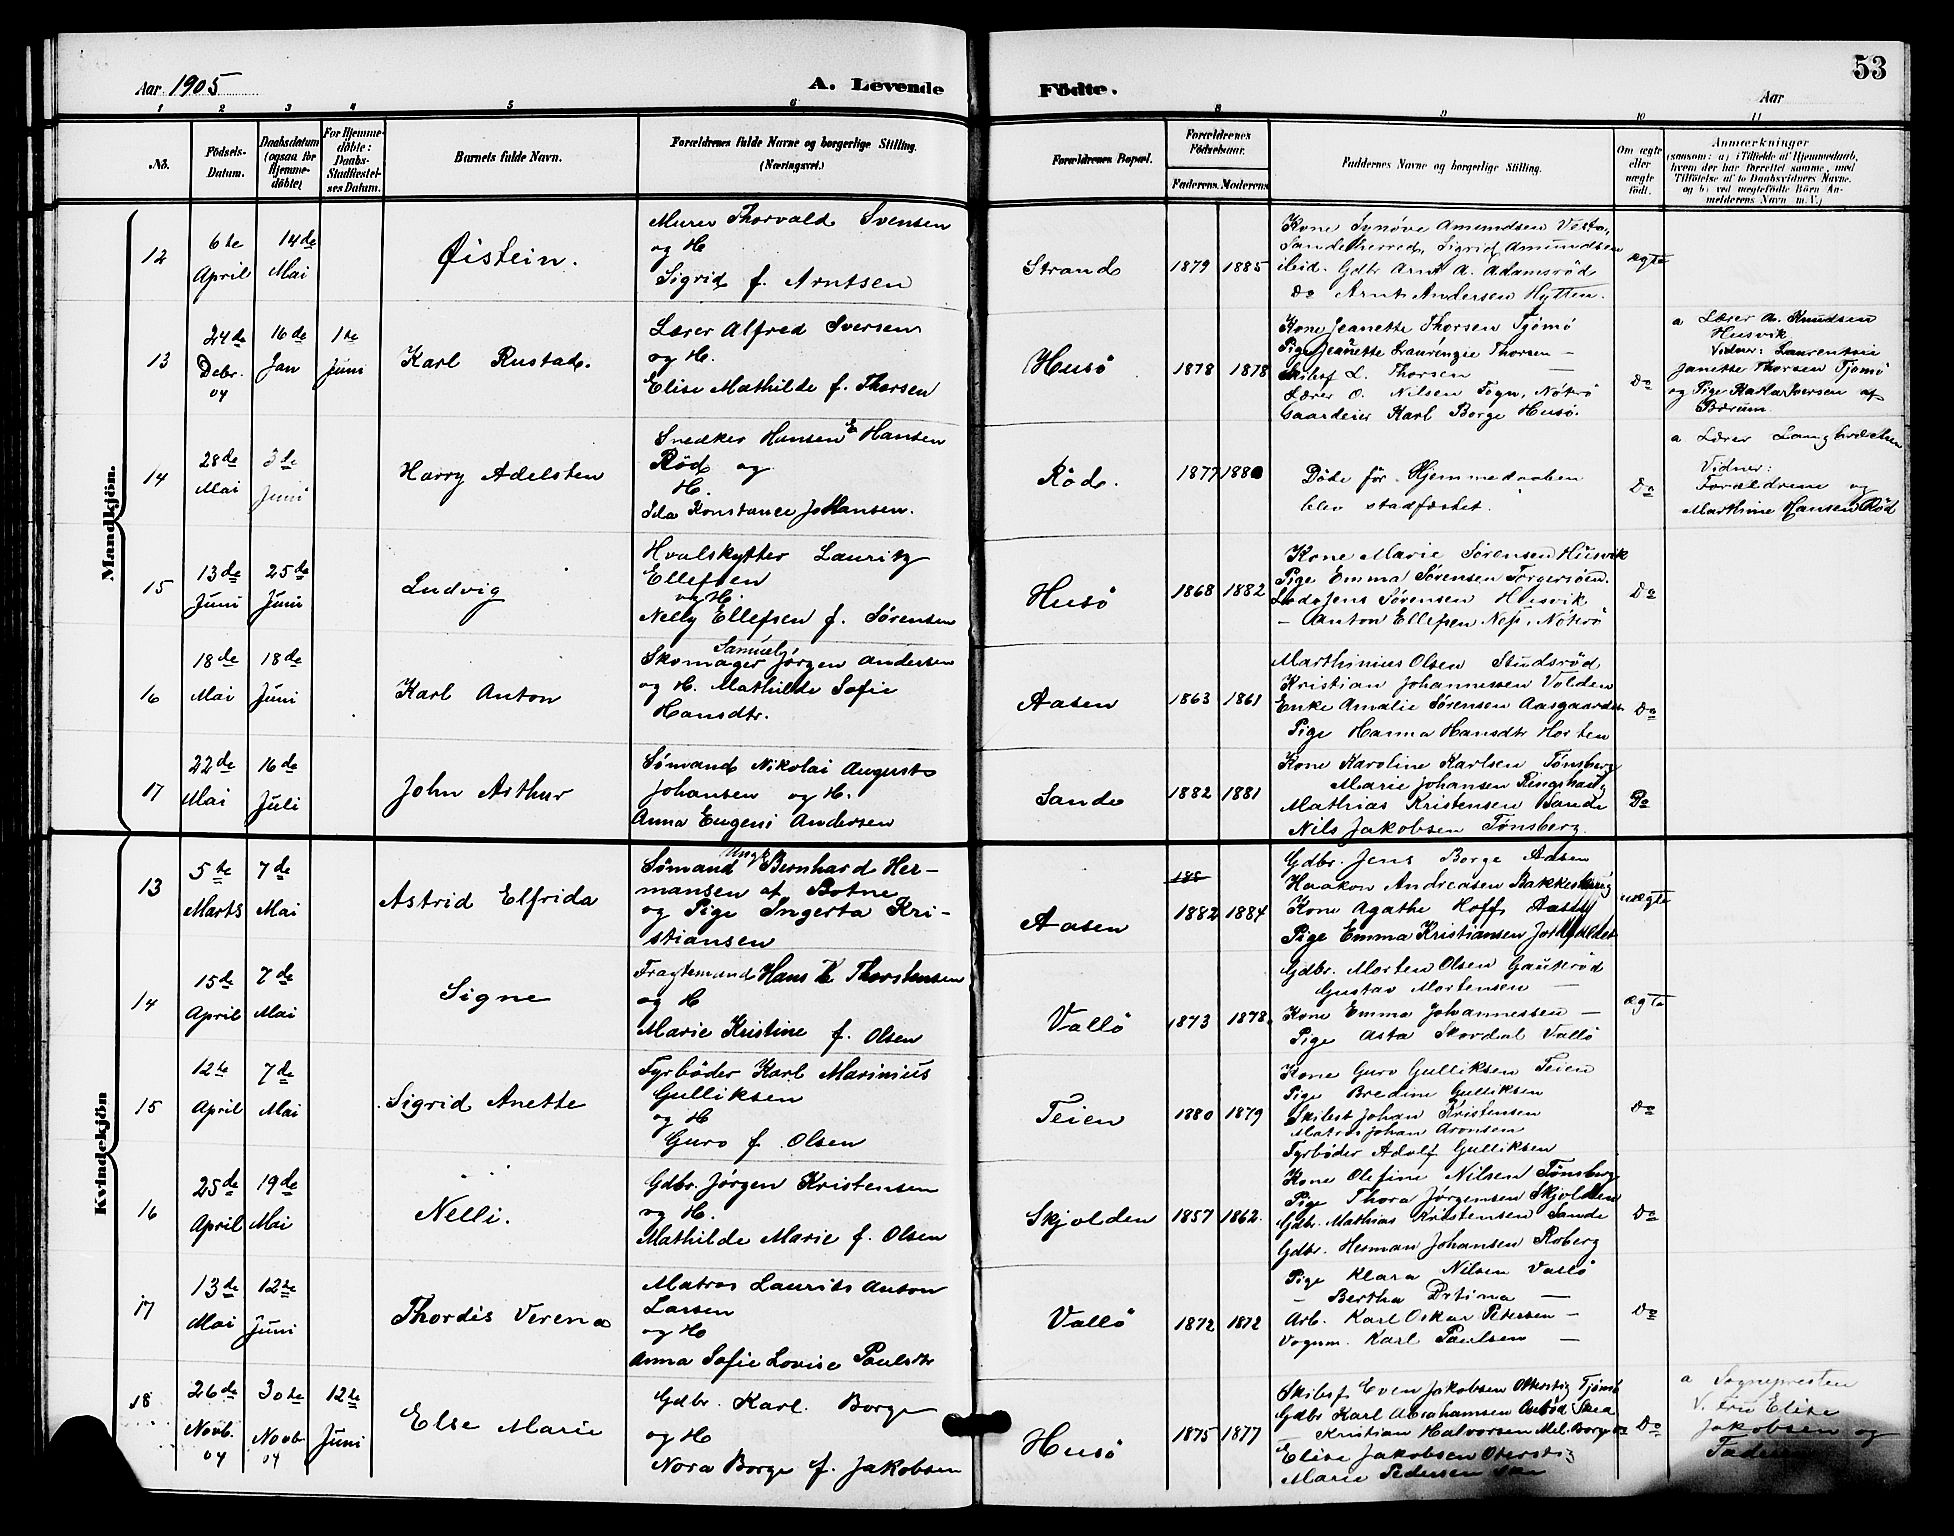 53
Aar 1905
A. Levende
Födte.
Aar
1 2 3 4 5 6 8 9 10 11
No.
Födsels-Datum.
Daabsdatum (ogsaa for Hjemmedöbte)
For Hjemmedöbte: Daabs-Stadfæstelses Datum.
Barnets fulde Navn.
Forældrenes fulde Navne og borgerlige Stilling.
(Næringsvei.)
Forældrenes Bopæl.
Forældrenes Födselsaar.
Faderens. Moderens.
Faddernes Navne og borgerlige Stilling.
Om ægte eller uægte födt.
Anmærkninger
(saasom: a) i Tilfælde af Hjemmedaab,
hvem der har forrettet samme, med
Tilföielse af to Daabsvidners Navne,
og b) ved uægtefödte Börn An-
melderens Navn m.V.)
Mandkjön.
12
6te April
14de Mai
Øistein.
Murer Thorvald Svensen
og H
Sigrid f. Arntsen
Strand
1879 1885
Kone Synøve Amundsen
Sandeherred, Sigrid Amundsen
ibid. Gdbr Arnt A. Adamsrød
Do Arnt Andersen Hytten.
ægte
13
24de Debr. 04
16de Jan
1te Juni
Karl Rustad.
Lærer Alfred Iversen
og H.
Elise Mathilde f. Thorsen
Husö
1878 1878
Kone Jeanette Thorsen Tjømø
Pige Jeanette Laurenzie Thorsen —
Skibsf L. Thorsen —
Lærer O. Nilsen Nøterø
Gaardeier Karl Borge Husö.
Do
a Lærer A. Knudsen
Husvik
Vidner: Laurentsie
Janette Thorsen Tjømø
og Pige Karla Iversen af
Bærum.
14
28de Mai
3te Juni
Harry Adelsten
Snedker Hansen E Hansen
Röd og
H.
Ida Konstance Johansen.
Röd.
1877 1880
Döde för Hjemmedaaben
blev stadfæstet.
Do
a Lærer
Vidner:
Forældrene og
Marthine Hansen Röd
15
13de Juni
25de Juni
Ludvig
Hvalskytter Lauritz
Ellefsen
og H.
Nelly Ellefsen f. Sørensen
Husö
1868 1882
Kone Marie Sørensen Husvik
Pige Emma Sørensen Torgersøen.
Lods Jens Sørensen Husvik
— Anton Ellefsen Nes, Nøterø
Do
16
18de Mai
18de Juni
Karl Anton
Samuels
Skomager Jørgen Andersen
og H. Mathilde Sofie
Hansdtr.
Aasen
1863 1861
Marthinius Olsen Studsrød
Kristian Johannessen Volden
Enke Amalie Sørensen Aasgaarden
Pige Hanna Hansdtr Horten
Do
17
22de Mai
16de Juli
John Arthur
Sømand Nikolai August
Johansen og H.
Anna Eugeni Andersen
Sande
1882 1881
Kone Karoline Karlsen Tønsberg
Marie Johansen Ringshaug
Mathias Kristensen Sande
Nils Jakobsen Tønsberg.
Do
Kvindekjön
13
5te Marts
7de Mai
Astrid Elfrida
Ungk
Sømand Bernhard Her-
mansen af Botne
og Pige Ingerta Kri-
stiansen
Aasen
188
1882 1884
Gdbr. Jens Borge Aasen
Haakon Andreasen Bakkeskaug
Kone Agathe Hoff Aasen
Pige Emma Kristiansen
uægte
14
15de April
7de Mai
Signe
Fragtemand Hans K Thorstensen
og H
Marie Kristine f. Olsen
Vallö
1873 1878.
Gdbr. Morten Olsen Gauterød
Gustav Mortensen —
Kone Emma Johannessen —
Pige Asta Skordal Vallö
ægte
15
12te April
7de Mai
Sigrid Anette
Fyrbøder Karl Marinius
Gulliksen
og H
Guro f. Olsen
Teien
1880 1879
Kone Guro Gulliksen Teien
Pige Bredine Gulliksen
Skibst Johan Kristensen
Matros Johan Aronsen
Fyrbøder Adolf Gulliksen
Do
16
25de April
19de Mai
Nelli.
Gdbr. Jørgen Kristensen
og H.
Mathilde Marie f. Olsen
Skjolden
1857 1862.
Kone Olefine Nilsen Tønsberg
Pige Thora Jørgensen Skjolden
Gdbr. Mathias Kristensen Sande
Gdbr. Herman Johansen Roberg
Do
17
13de Mai
12te Juni
Thordis Verena
Matros Laurits Anton
Larsen
og H
Anna Sofie Lovise Paulsdtr
Vallö
1872 1872
Pige Klara Nilsen Vallö
— Bertha —
Arb. Karl Oskar Petersen —
Vognm. Karl Paulsen —
Do
18
26de Novb. 04
30te Novb 04
12te Juni
Else Marie
Gdbr. Karl Borge
og H
Nora Borge f. Jakobsen
Husö
1875 1877
Skibsf Even Jakobsen Tjømø
Gdbr Karl Abrahamsen
— Kristian Halvorsen Mel. Borge
Elise Jakobsen
Marie Pedersen
Do
a Sognepresten
V. Fru Elise
Jakobsen og